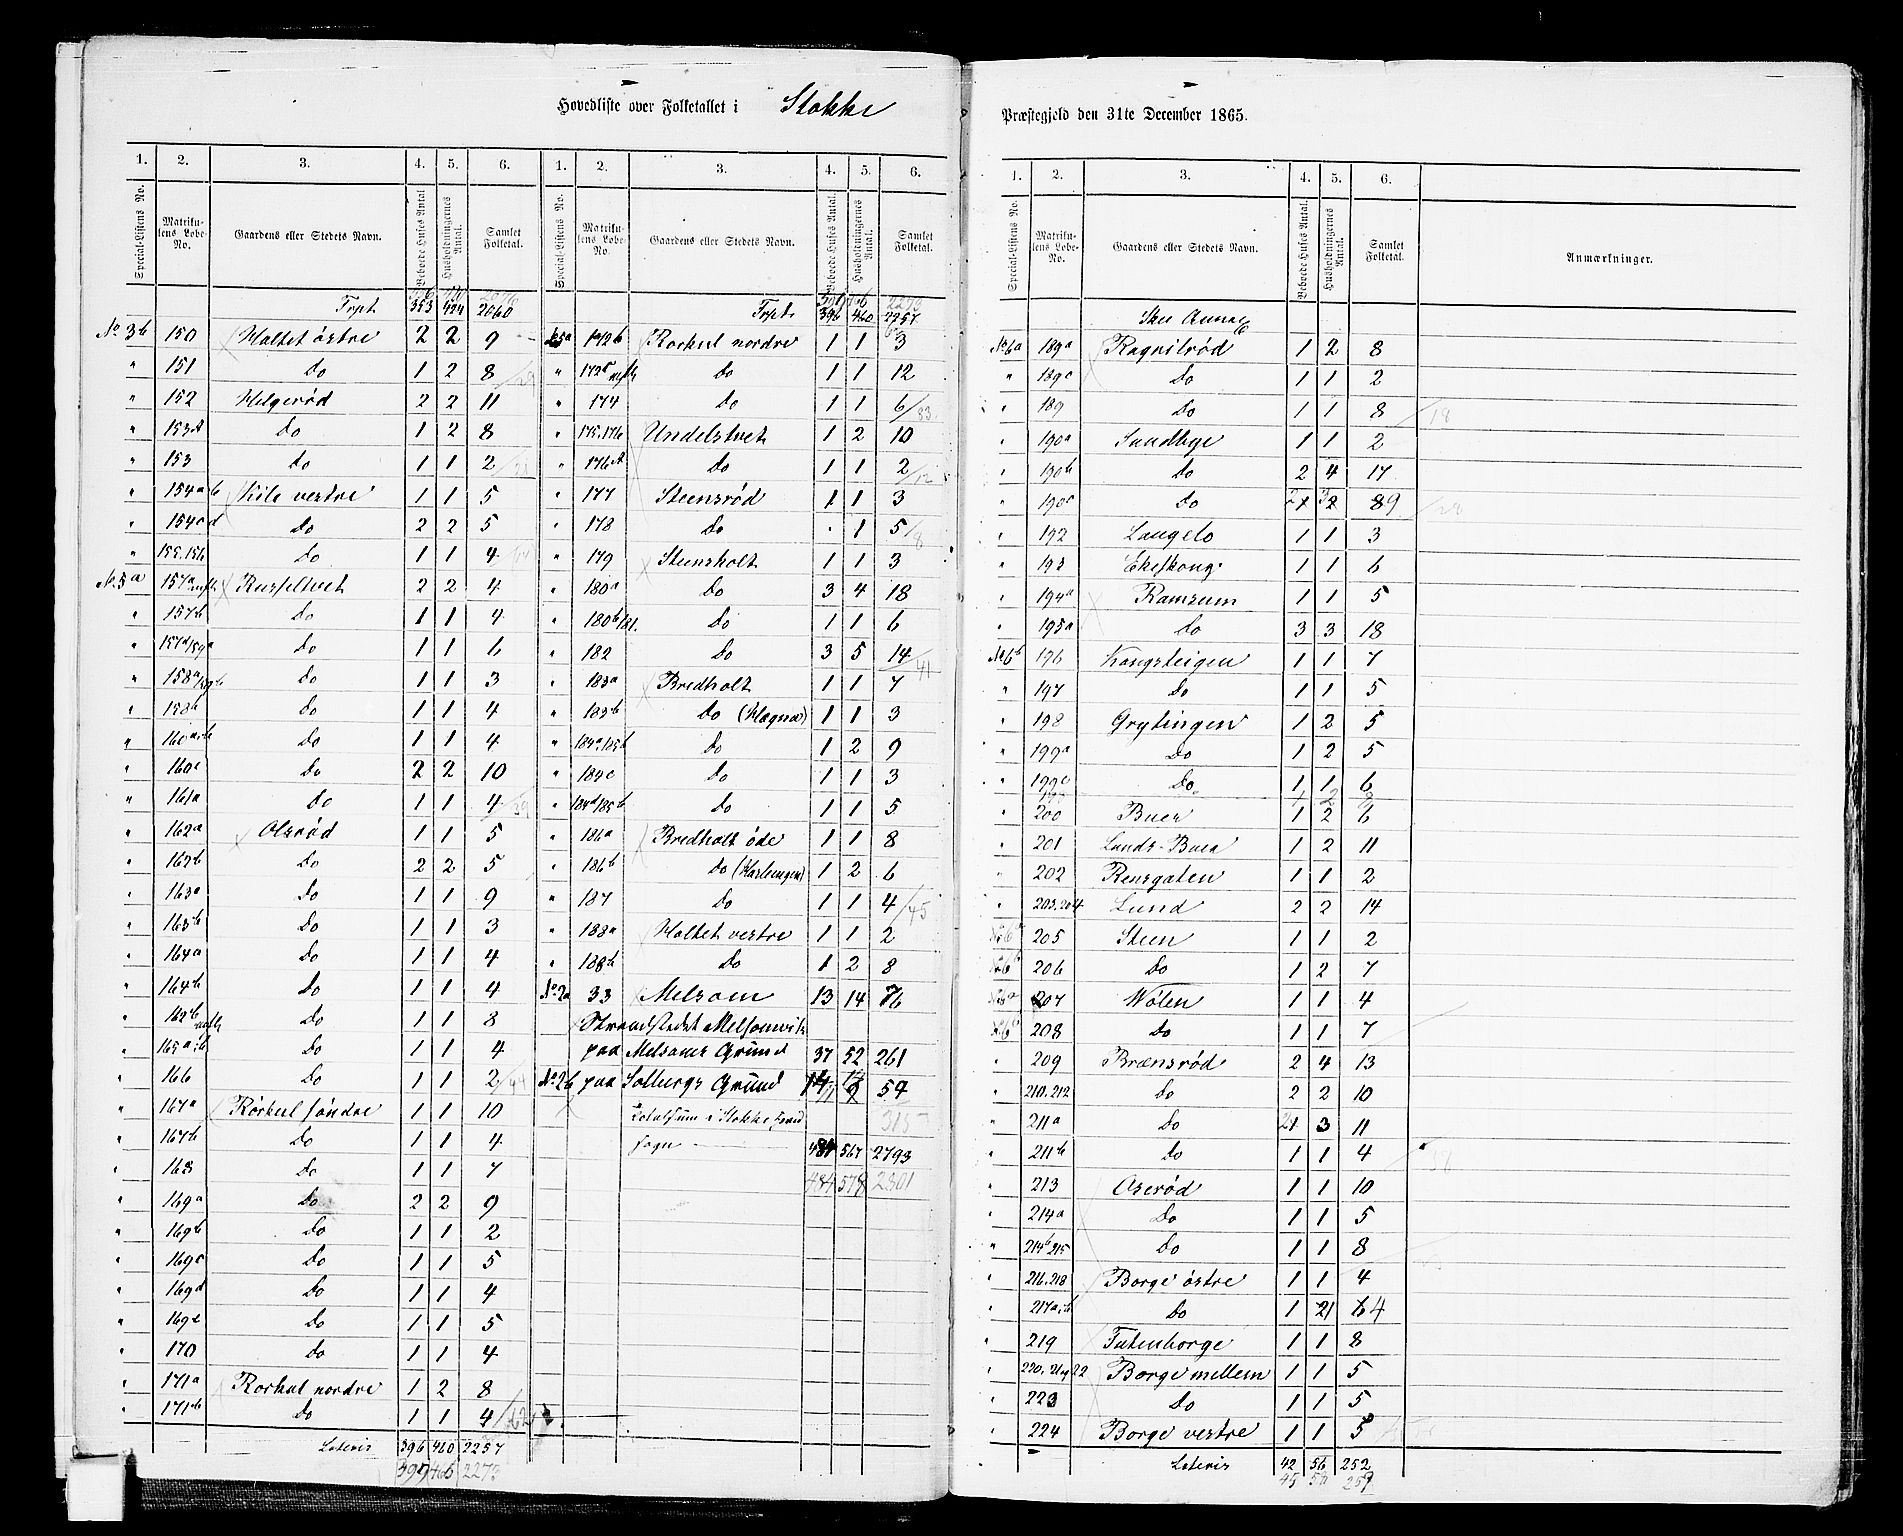 Hovedliste over Folketallet i Stokke
Præstegjeld den 31te December 1865.
1. 2. 3. 4. 5. 6. 1. 2. 3. 4. 5. 6.
Special-Listens No. Matrikulens Løbe-No. Gaardens eller Stedets Navn. Beboede Huses Antal. Husholdningernes Antal. Samlet Folketal.
Trpt. 353 424 2060
No 3b 150 Holtet østre 2 2 9
" 151 Do 1 2 8
" 152 Helgerød 2 2 11
" 153A Do 1 2 8
" 153 Do 1 1 2
" 154ab Kile vestre 1 1 5
" 154cd Do 2 2 5
" 155.156 Do 1 1 4
No 5a 157a Russeltvet 2 2 4
" 157b Do 1 1 4
" 157d 159a Do 1 1 6
" 158a 159b Do 1 1 3
" 158b Do 1 1 4
" 160a.b Do 1 1 4
" 160c Do 2 2 10
" 161a Do 1 1 4
" 162a Olsrød 1 1 5
" 162b Do 2 2 5
" 163a Do 1 1 9
" 163b Do 1 1 3
" 164a Do 1 1 4
" 164b Do 1 1 4
" 162b Do 1 1 8
" 165a.b Do 1 1 4
" 166 Do 1 1 2
" 167a Rørkul søndre 1 1 10
" 167b Do 1 1 4
" 168 Do 1 1 7
" 169a Do 2 2 9
" 169b Do 1 1 2
" 169c Do 1 1 5
" 169d Do 1 1 4
" 169e Do 1 1 5
" 170 Do 1 1 4
" 171a Rorkul nordre 1 2 8
" 171b Do 1 1 4
Lateris 396 460 2257
397 466 2273
Special-Listens No. Matrikulens Løbe-No. Gaardens eller Stedets Navn. Beboede Huses Antal. Husholdningernes Antal. Samlet Folketal.
Trpt. 396 460 2257
5a 172b Rorkul nordre 1 1 3
" 172c Do 1 1 12
" 174 Do 1 1 6
" 175.176 Undelstvet 1 2 10
" 176A Do 1 1 2
" 177 Steensrød 1 1 3
" 178 Do . 1 5
" 179 Steensholt 1 1 3
" 180a Do 3 4 18
" 180b 181. Do 1 1 6
" 182 Do 3 5 14
" 183a Bredholt 1 1 7
" 183b Do (Hægna) 1 1 3
" 184a.185b Do 1 2 9
" 184c Do 1 1 3
" 184d 185b Do 1 1 5
" 186a Bredholt øde 1 1 8
" 186b Do 1 2 6
" 187 Do 1 1 4
" 188a Holtet vestre 1 1 2
" 188b Do 1 2 8
No 2a 33 Melsom 13 14 76
Strandstedet Melsomvik
paa Melsoms Grund 37 52 261
No 2b paa Solbergs Grund 14 57
Totalsum i Stokke Hoved 315
sogn 567 2793
484 578 2801
1. 2. 3. 4. 5. 6.
Special-Listens No. Matrikulens Løbe-No. Gaardens eller Stedets Navn. Beboede Huses Antal. Husholdningernes Antal. Samlet Folketal. Anmærkninger.
No 6a 189a Ragnilrød 1 2 8
" 189c Do 1 1 2
" 189 Do 1 1 8
" 190a Sundbye 1 1 2
" 190b Do 2 4 17
" 190c Do 2 3 9
" 192 Langelo 1 1 3
" 193 Ekeskong 1 1 6
" 194a Ramsum 1 1 5
" 195a Do 3 3 18
No 6b 196 Kongsteigen 1 1 7
" 197 Do 1 1 5
" 198 Grytingen 1 2 5
" 199a Do 1 2 5
" 199c Do 1 1 6
" 200 Buer 1 2 6
" 201 Lunds-Buer 1 2 11
" 202 Rensgaten 1 1 2
" 203.204 Lund 2 2 14
205 Steen 1 1 2
206 Do 1 2 7
207 Nølen 1 1 4
208 Do 1 1 7
" 209 Brænsrød 2 4 13
" 210.212 Do 2 2 10
" 211a Do 2 3 11
" 211b Do 1 1 4
" 213 Oserød 1 1 10
" 214a Do 1 1 5
" 214b 215 Do 1 1 8
" 216.218 Borge østre 1 1 4
" 217a.b Do 1 21 64
" 219 Futenborge 1 1 8
" 220. 22 Borge mellem 1 1 5
" 223 Do 1 1 5
" 224 Borge vestre 1 1 5
Lateris 42 56 252
45 58 259